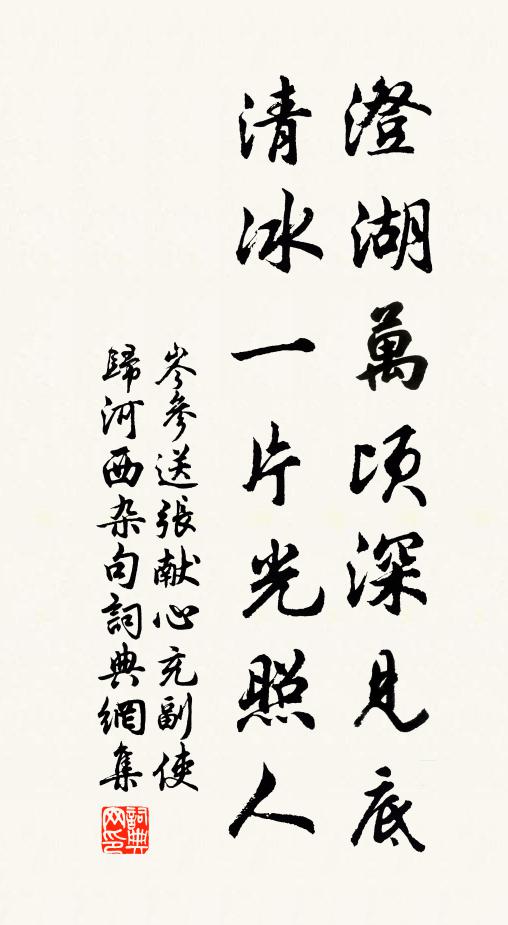 澄湖萬頃深見底
清冰一片光照人
岑參送張献心充副使
歸河西杂句詞典網集
詞典
网印